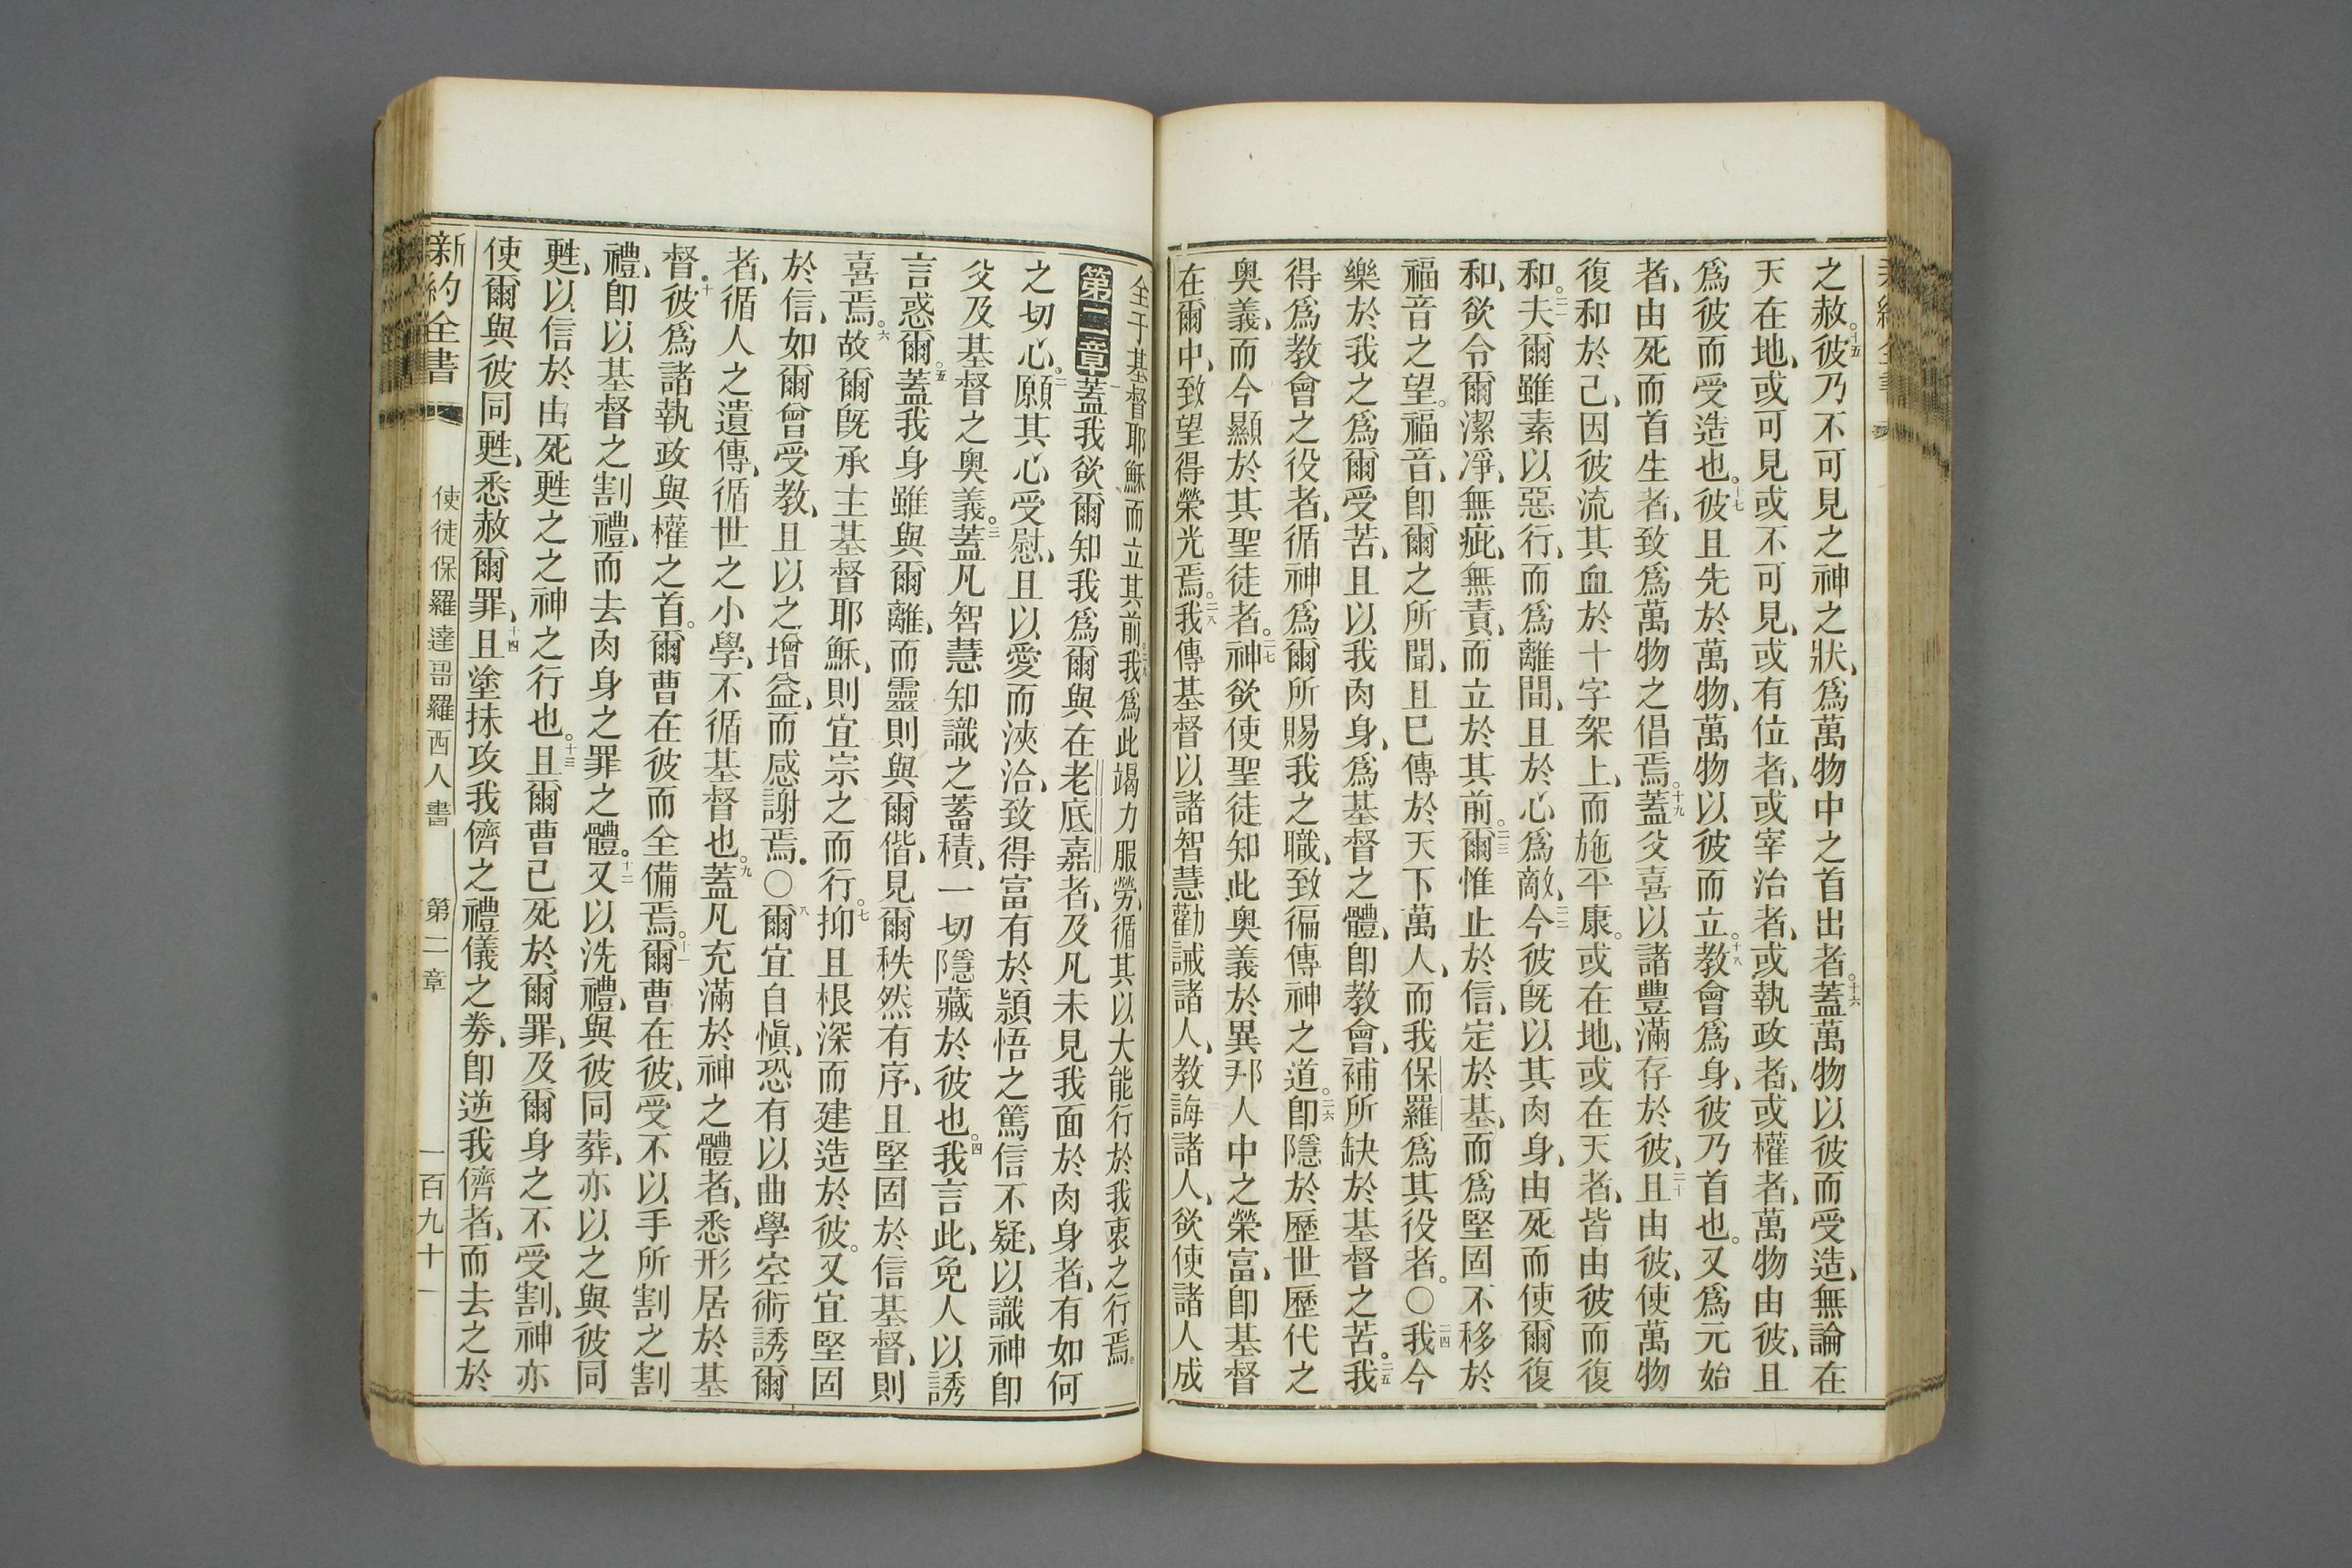 之赦。十五彼乃不可見之神之狀、爲萬物中之首出者。十六蓋萬物以彼而受造、無論在
天在地、或可見或不可見、或有位者、或宰治者、或執政者、或權者、萬物由彼、且
爲彼而受造也。十七彼且先於萬物、萬物以彼而立。十八教會爲身、彼乃首也。又爲元始
者、由死而首生者、致爲萬物之倡焉。十九蓋父喜以諸豐滿存於彼、二十且由彼、使萬物
復和於己、因彼流其血於十字架上、而施平康。或在地、或在天者、皆由彼而復
和。二一夫爾雖素以惡行、而爲離間、且於心爲敵、二二今彼旣以其肉身、由死而使爾復
和、欲令爾潔凈、無疵、無責、而立於其前。二三爾惟止於信、定於基、而爲堅固不移於
福音之望。福音、卽爾之所聞、且已傳於天下萬人、而我保羅爲其役者。〇二四我今
樂於我之爲爾受苦、且以我肉身、爲基督之體、卽教會、補所缺於基督之苦。二五我
得爲教會之役者、循神爲爾所賜我之職、致徧傳神之道。二六卽隱於歷世歷代之
奥義、而今顯於其聖徒者。二七神欲使聖徒知此奥義於異邦人中之榮富、卽基督
在爾中、致望得榮光焉。二八我傳基督以諸智慧勸誡諸人、教誨諸人、欲使諸人成
全于基督耶穌而立其前。我爲此竭力服勞、循其以大能行於我衷之行焉。
第二章一蓋我欲爾知我爲爾與在老底嘉者、及凡未見我面於肉身者、有如何
之切心。二願其心受慰、且以愛而浹洽、致得富有於穎悟之篤信不疑、以識神卽
父及基督之奥義。三蓋凡智慧知識之蓄積、一切隱藏於彼也。四我言此、免人以誘
言惑爾。五蓋我身雖與爾離、而靈則與爾偕、見爾秩然有序、且堅固於信基督、則
喜焉。六故爾旣承主基督耶穌、則宜宗之而行。七抑且根深而建造於彼。又宜堅固
於信、如爾曾受教、且以之增益、而感謝焉。〇八爾宜自愼、恐有以曲學空術誘爾
者、循人之遺傳、循世之小學、不循基督也。九蓋凡充滿於神之體者、悉形居於基
督。十彼爲諸執政與權之首。爾曹在彼而全備焉。十一爾曹在彼、受不以手所割之割
禮、卽以基督之割禮、而去肉身之罪之體。十二又以洗禮、與彼同葬、亦以之與彼同
甦、以信於由死甦之之神之行也。十三且爾曹已死於爾罪、及爾身之不受割、神亦
使爾與彼同甦、悉赦爾罪、十四且塗抹攻我儕之禮儀之券、卽逆我儕者、而去之於
新約全書 使徒保羅達哥羅西人書 第二章 一百九十一